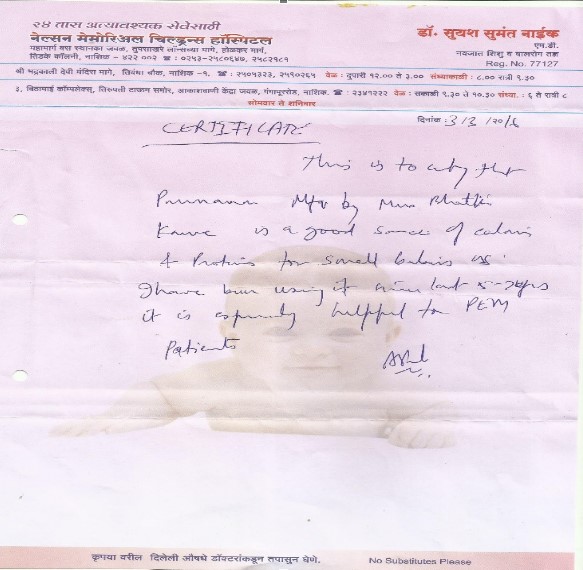 २४ तास अत्यावश्यक सेवेसाठी
नेल्सन मेमोरिअल चिल्ड्रन्स हॉस्पिटल
महामार्ग बस स्थानका जवळ, तुपसाखरे लॉन्सच्या मागे, होळकर मार्ग,
तिडके कॉलनी, नाशिक - ४२२ ००२ ☎ : ०२५३-२५८०६४७, २५८२१८१
डॉ. सुयश सुमंत नाईक
एम.डी.
नवजात शिशु व बालरोग तज्ञ
Reg. No. 77127
श्री भद्रकाली देवी मंदिरा मागे, तिवंधा चौक, नाशिक -१. ☎ : २५०५३२३, २५९०२६५ वेळ : दुपारी १२.०० ते ३.०० संध्याकाळी : ८.०० रात्री ९.३०
३, विठामाई कॉम्पलेक्स, तिरुपती टाऊन समोर, आकाशवाणी केंद्रा जवळ, गंगापूररोड, नाशिक. ☎ : २३४१२२२ वेळ : सकाळी ९.३० ते १०.३० संध्या. : ६ ते रात्री ८
सोमवार ते शनिवार
दिनांक : 3/3/2016
CERTIFICATE
This is to certify that
Mfg by Bhakti
is a good source of
& Proteins for small babies as
I have been using it since last years
it is especially helpful for PEM
Patients
कृपया वरील दिलेली औषधे डॉक्टरांकडून तपासुन घेणे. No Substitutes Please